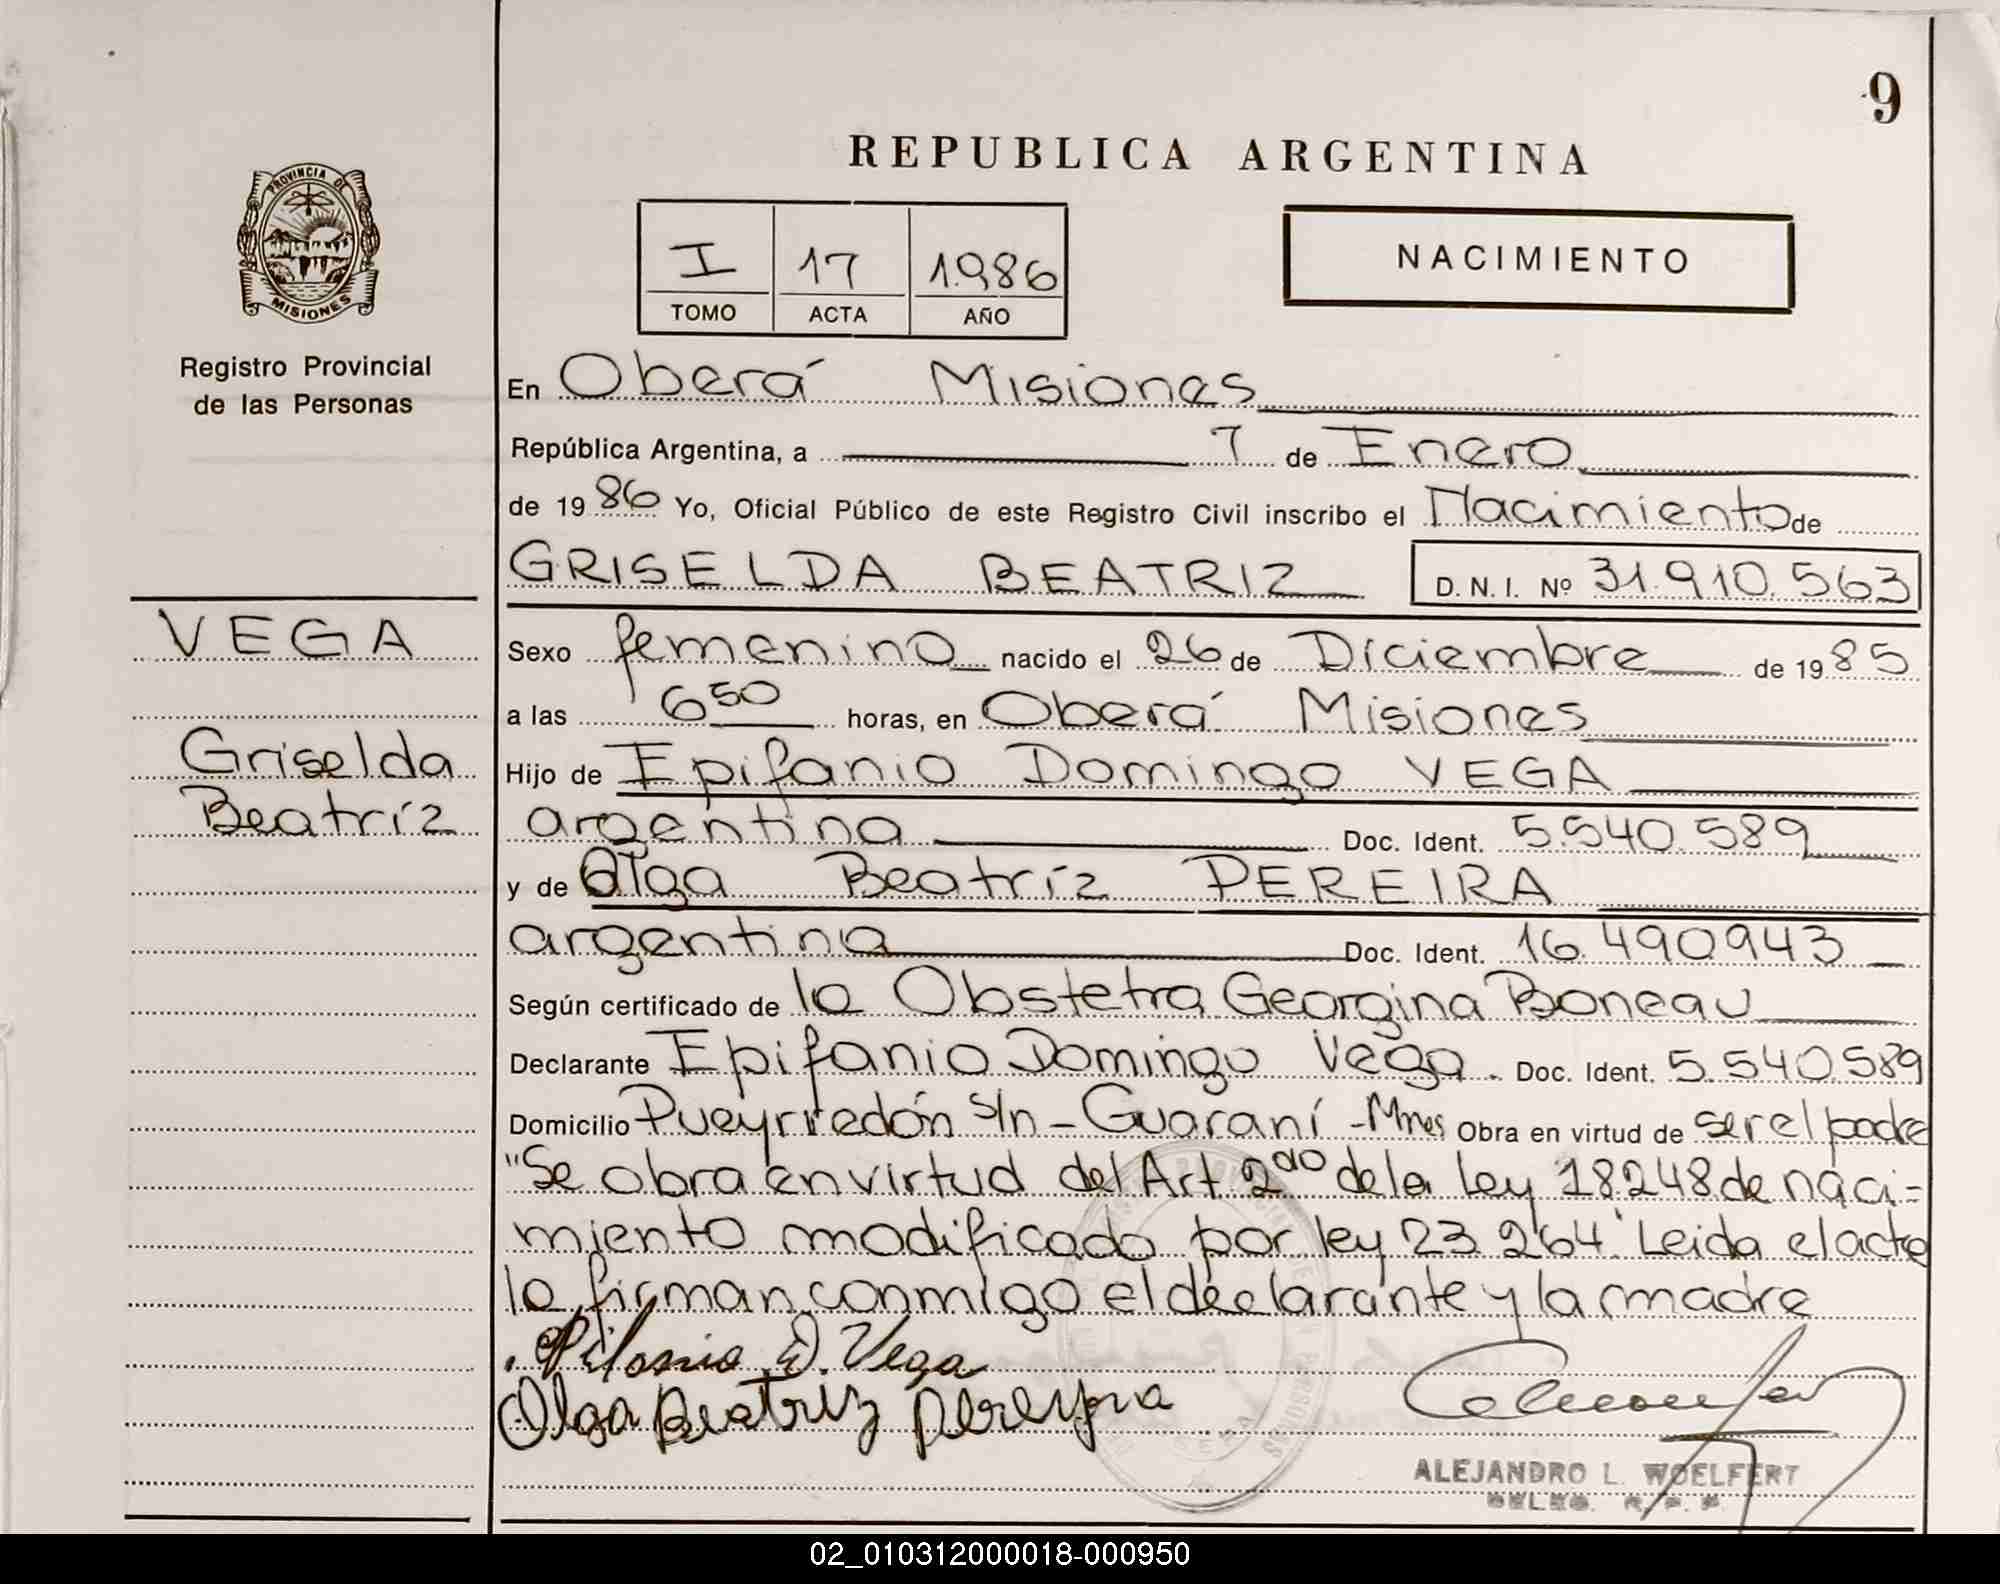 9
REPUBLICA ARGENTINA
PROVINCIA DE
MISIONES
Registro Provincial
de las Personas
I 17 1.986
TOMO ACTA AÑO
NACIMIENTO
En Oberá Misiones
República Argentina, a 7 de Enero
de 1986 Yo, Oficial Público de este Registro Civil inscribo el Nacimiento de
GRISELDA BEATRIZ D. N. I. Nº 31.910.563
VEGA
Griselda
Beatríz
Sexo femenino nacido el 26 de Diciembre de 1985
a las 6 50 horas, en Oberá Misiones
Hijo de Epifanio Domingo VEGA
argentina Doc. Ident. 5.540.589
y de Olga Beatríz PEREIRA
argentina Doc. Ident. 16.490943
Según certificado de la Obstetra Georgina Boneau
Declarante Epifanio Domingo Vega. Doc. Ident. 5.540.589
Domicilio Pueyrredón s/n - Guaraní - Mnes Obra en virtud de ser el padre
"Se obra en virtud del Art 2do de la Ley 18248 de naci-
miento modificado por ley 23.264" Leida el acta
la firman conmigo el declarante y la madre
D. Vega
Olga Beatriz Pereyra
ALEJANDRO L. WOELFERT
02_010312000018-000950